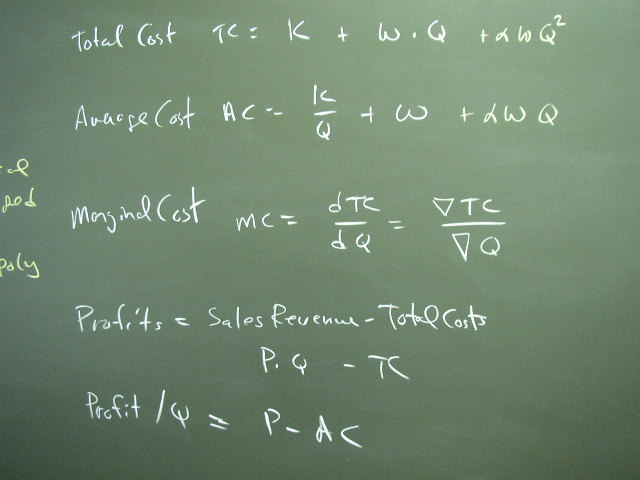 Total Cost TC = K + W . Q + αWQ²
Average Cost AC = K/Q + W + αWQ
Marginal Cost MC = dTC/dQ = ▽TC/▽Q
Profits = Sales Revenue - Total Costs
P.Q - TC
Profit/Q = P - AC
poly